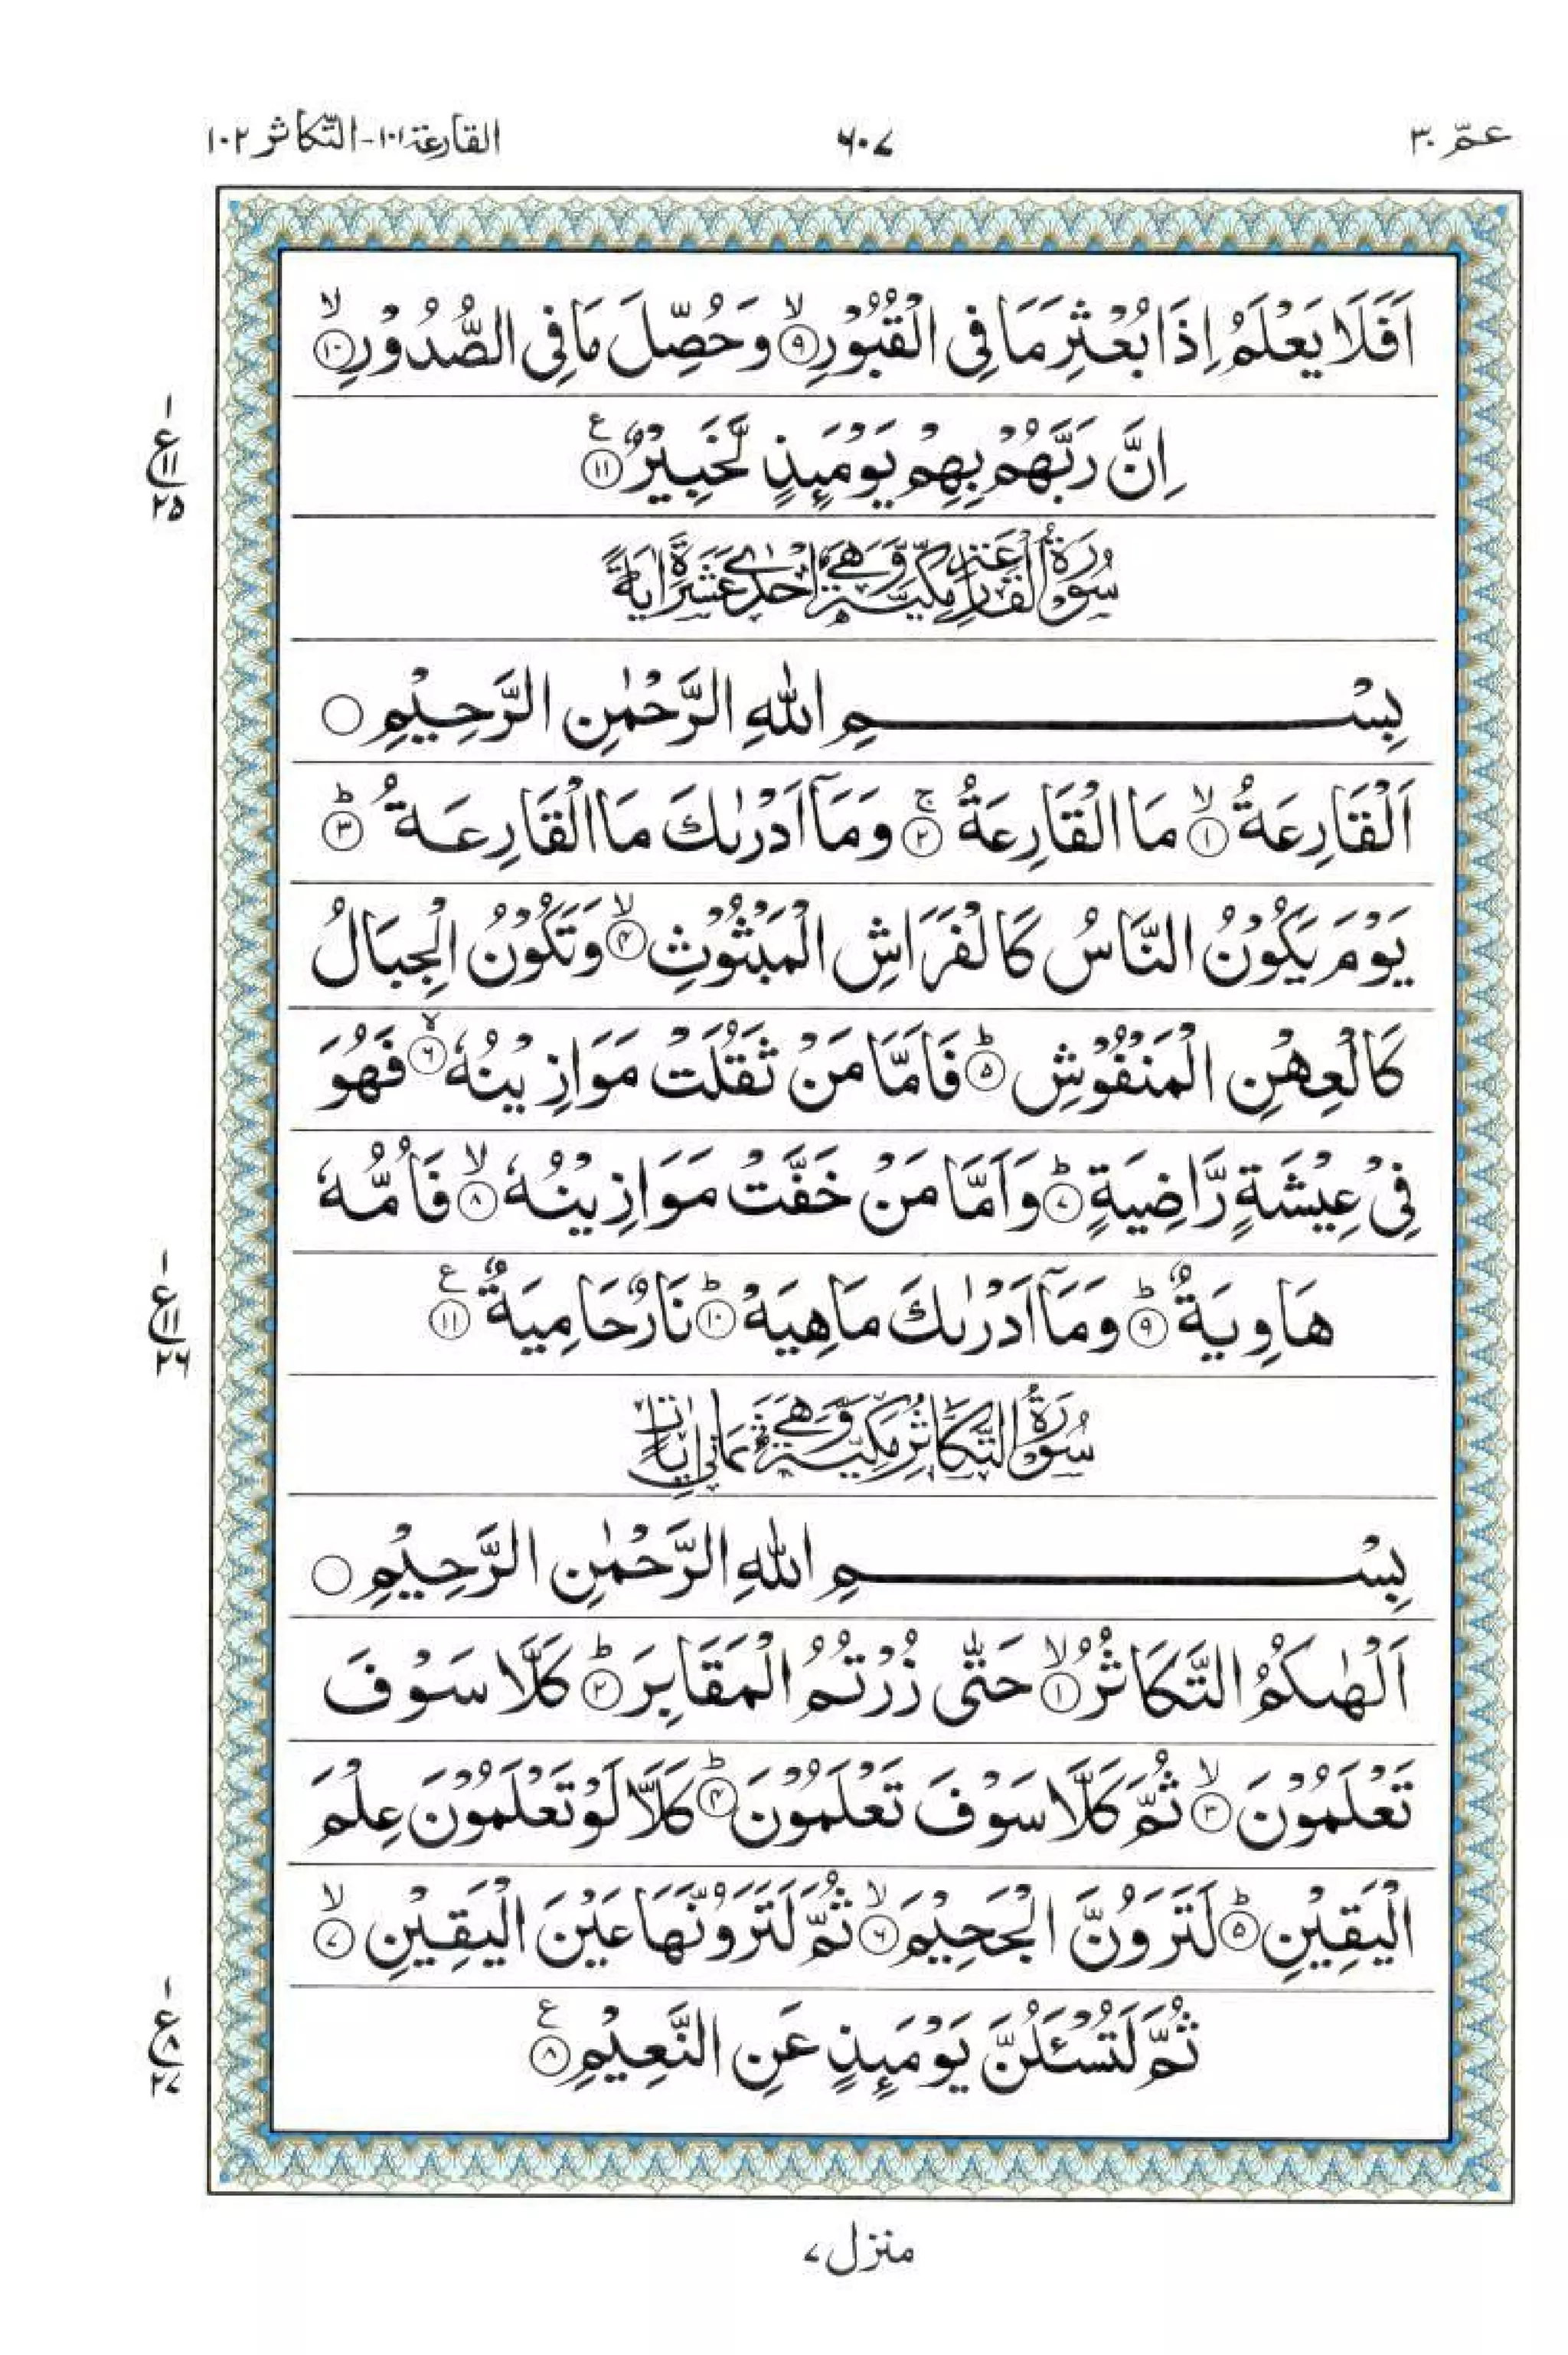 عمّ ۳۰
۶۰۷
القارعة ۱۰۱ - التّكاثر ۱۰۲
اَفَلَا يَعْلَمُ اِذَا بُعْثِرَ مَا فِى الْقُبُوْرِ ۙ﴿۹﴾ وَحُصِّلَ مَا فِى الصُّدُوْرِ ۙ﴿۱۰﴾
اِنَّ رَبَّهُمْ بِهِمْ يَوْمَئِذٍ لَّخَبِيْرٌ ﴿۱۱﴾ ع
۱
ع
۱۱
۲۵
سُوْرَةُ الْقَارِعَةِ مَكِّيَّةٌ وَّهِىَ اِحْدٰى عَشَرَةَ اٰيَةً
بِسْمِ اللّٰهِ الرَّحْمٰنِ الرَّحِيْمِ ○
اَلْقَارِعَةُ ۙ﴿۱﴾ مَا الْقَارِعَةُ ۚ﴿۲﴾ وَمَاۤ اَدْرٰىكَ مَا الْقَارِعَةُ ؕ﴿۳﴾
يَوْمَ يَكُوْنُ النَّاسُ كَالْفَرَاشِ الْمَبْثُوْثِ ۙ﴿۴﴾ وَتَكُوْنُ الْجِبَالُ
كَالْعِهْنِ الْمَنْفُوْشِ ؕ﴿۵﴾ فَاَمَّا مَنْ ثَقُلَتْ مَوَازِيْنُهٗ ۙ﴿۶﴾ فَهُوَ
فِىْ عِيْشَةٍ رَّاضِيَةٍ ؕ﴿۷﴾ وَاَمَّا مَنْ خَفَّتْ مَوَازِيْنُهٗ ۙ﴿۸﴾ فَاُمُّهٗ
هَاوِيَةٌ ؕ﴿۹﴾ وَمَاۤ اَدْرٰىكَ مَاهِيَهْ ؕ﴿۱۰﴾ نَارٌ حَامِيَةٌ ﴿۱۱﴾ ع
۱
ع
۱۱
۲۶
سُوْرَةُ التَّكَاثُرِ مَكِّيَّةٌ وَّهِىَ ثَمَانِىْ اٰيَاتٍ
بِسْمِ اللّٰهِ الرَّحْمٰنِ الرَّحِيْمِ ○
اَلْهٰىكُمُ التَّكَاثُرُ ۙ﴿۱﴾ حَتّٰى زُرْتُمُ الْمَقَابِرَ ؕ﴿۲﴾ كَلَّا سَوْفَ
تَعْلَمُوْنَ ۙ﴿۳﴾ ثُمَّ كَلَّا سَوْفَ تَعْلَمُوْنَ ؕ﴿۴﴾ كَلَّا لَوْ تَعْلَمُوْنَ عِلْمَ
الْيَقِيْنِ ؕ﴿۵﴾ لَتَرَوُنَّ الْجَحِيْمَ ۙ﴿۶﴾ ثُمَّ لَتَرَوُنَّهَا عَيْنَ الْيَقِيْنِ ۙ﴿۷﴾
ثُمَّ لَتُسْئَلُنَّ يَوْمَئِذٍ عَنِ النَّعِيْمِ ﴿۸﴾ ع
۱
ع
۸
۲۷
منزل ۷